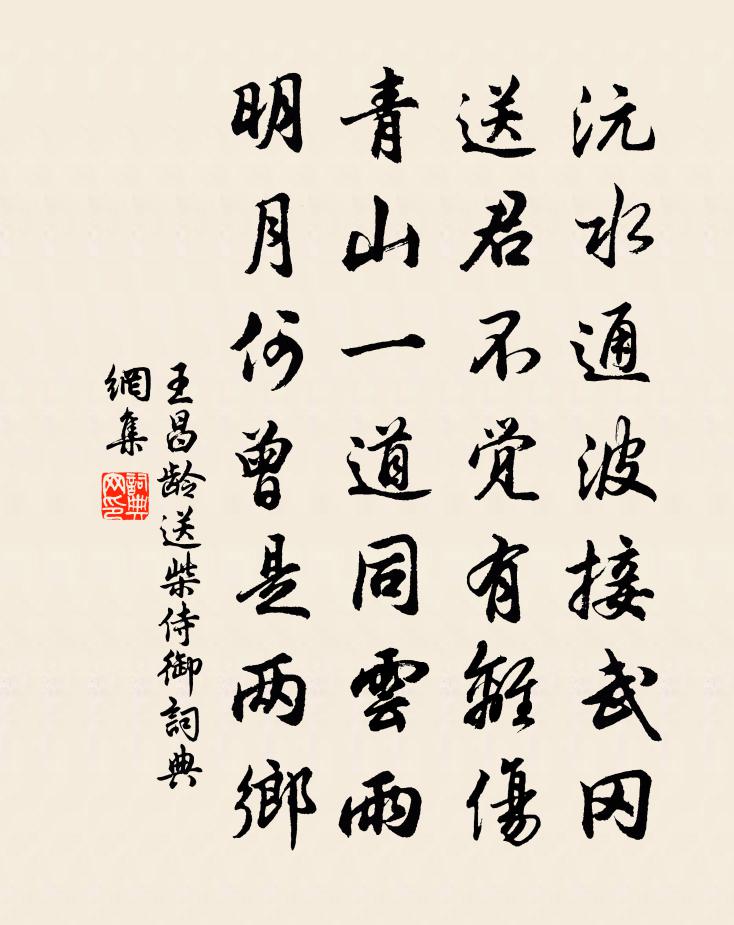 沅水通波接武冈
送君不觉有離傷
青山一道同雲雨
明月何曾是两鄉
王昌龄送柴侍御詞典
網集
詞典
网印